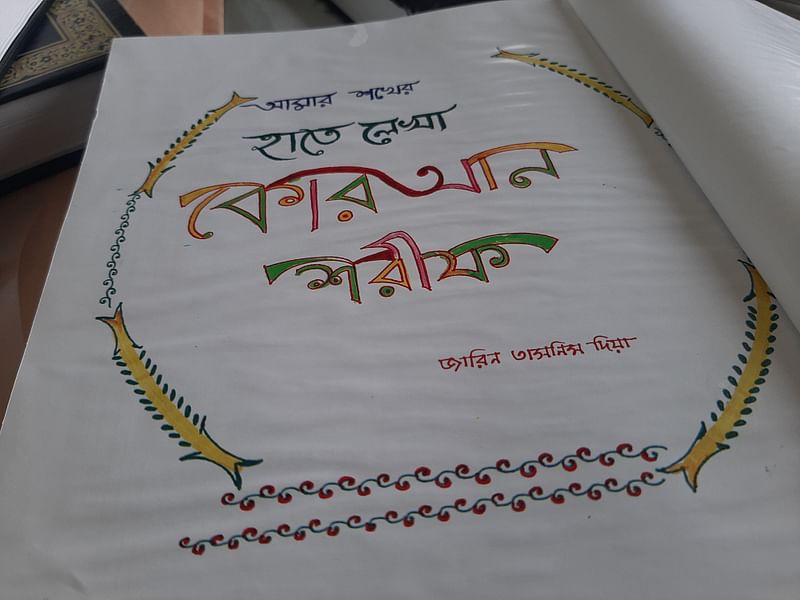 আমার শখের
হাতে লেখা
কোরআন
শরীফ
জারিন তাসনিম দিয়া